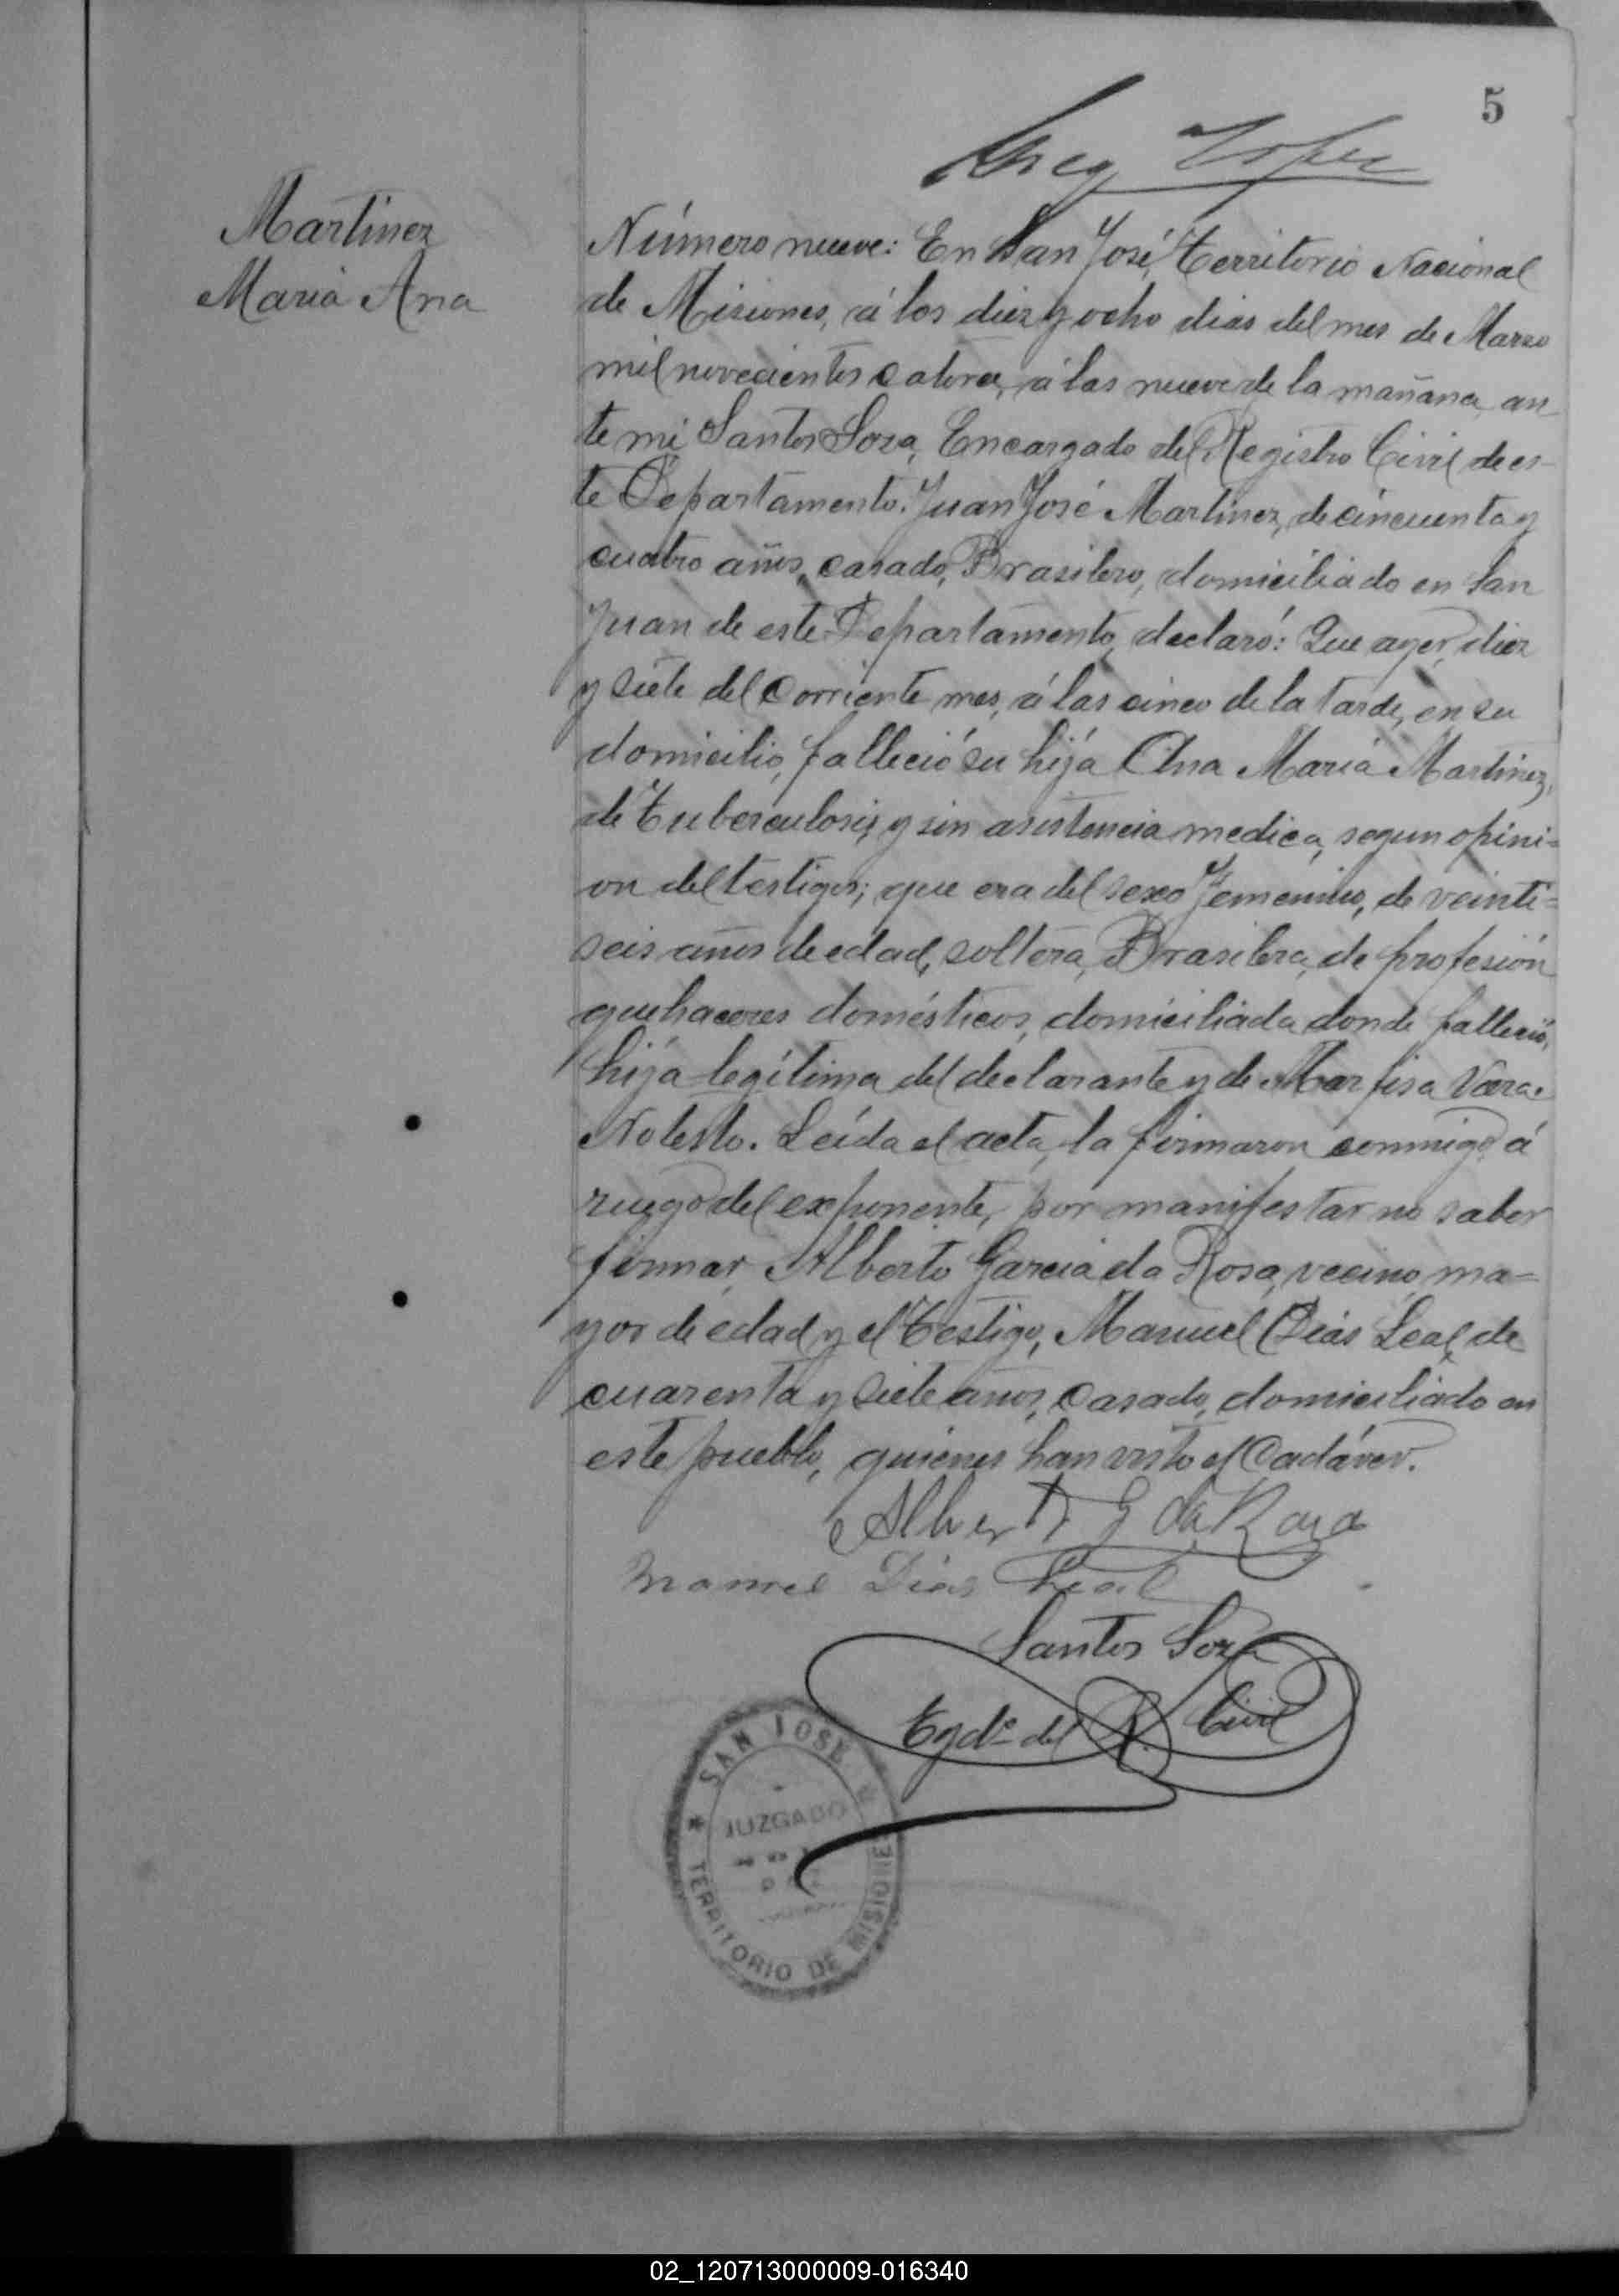 5
Lopez
Martinez
Maria Ana
Número nueve: En San José, Territorio Nacional
de Misiones, á los diez y ocho dias del mes de Marzo
mil novecientos catorce, á las nueve de la mañana, an-
te mi Santos Soza, Encargado del Registro Civil de es-
te Departamento. Juan José Martinez, de cincuenta y
cuatro años, casado, Brasilero, domiciliado en San
Juan de este Departamento, declaró: Que ayer, diez
y siete del corriente mes, á las cinco de la tarde, en su
domicilio, falleció su hija Ana Maria Martinez,
de Tuberculosis, y sin asistencia medica, segun opini-
on del testigos; que era del sexo Femenino, de veinti-
seis años de edad, soltera, Brasilera, de profesión
quehaceres domésticos, domiciliada donde falleció,
hija legítima del declarante y de Marfisa Vera.
No testo. Leída el acta, la firmaron conmigo, á
ruego del exponente, por manifestar no saber
firmar, Alberto Garcia da Rosa, vecino, ma-
yor de edad y el Testigo, Manuel Dias Leal, de
cuarenta y siete años, casado, domiciliado en
este pueblo, quienes han visto el Cadáver.
Alberto G da Rosa
Manuel Dias Leal
Santos Soza
Egdo del R. Civil
SAN JOSE
JUZGADO
TERRITORIO DE MISIONES
02_120713000009-016340